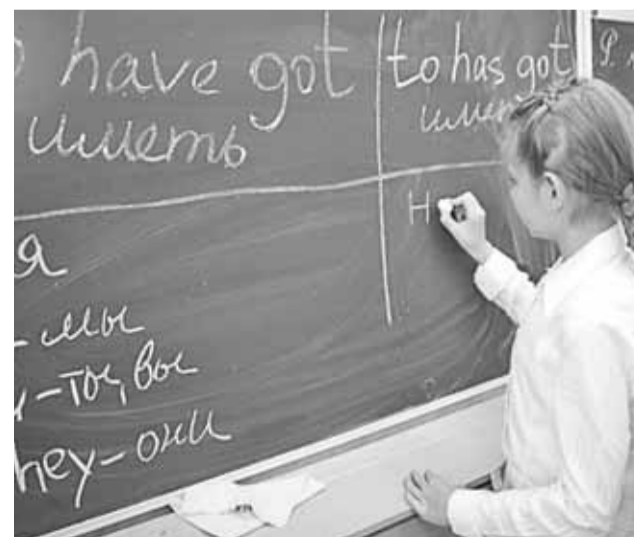 have got
иметь
to has got
иметь
Н
я
- мы
- ты, вы
hey - они